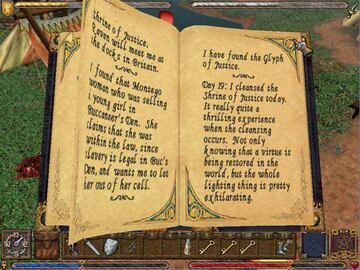 shrine of Justice.
Raven will meet me at
the docks in Britain.
I found that Montego
woman who was selling
a young girl in
Buccaneer's Den. She
claims that she was
within the law, since
slavery is legal in Buc's
Den, and wants me to let
her out of her cell.
I have found the Glyph
of Justice.
Day 19: I cleansed the
Shrine of Justice today.
It really quite a
thrilling experience
when the cleansing
occurs. Not only
knowing that a virtue is
being restored in the
world, but the whole
lighting thing is pretty
exhilarating.